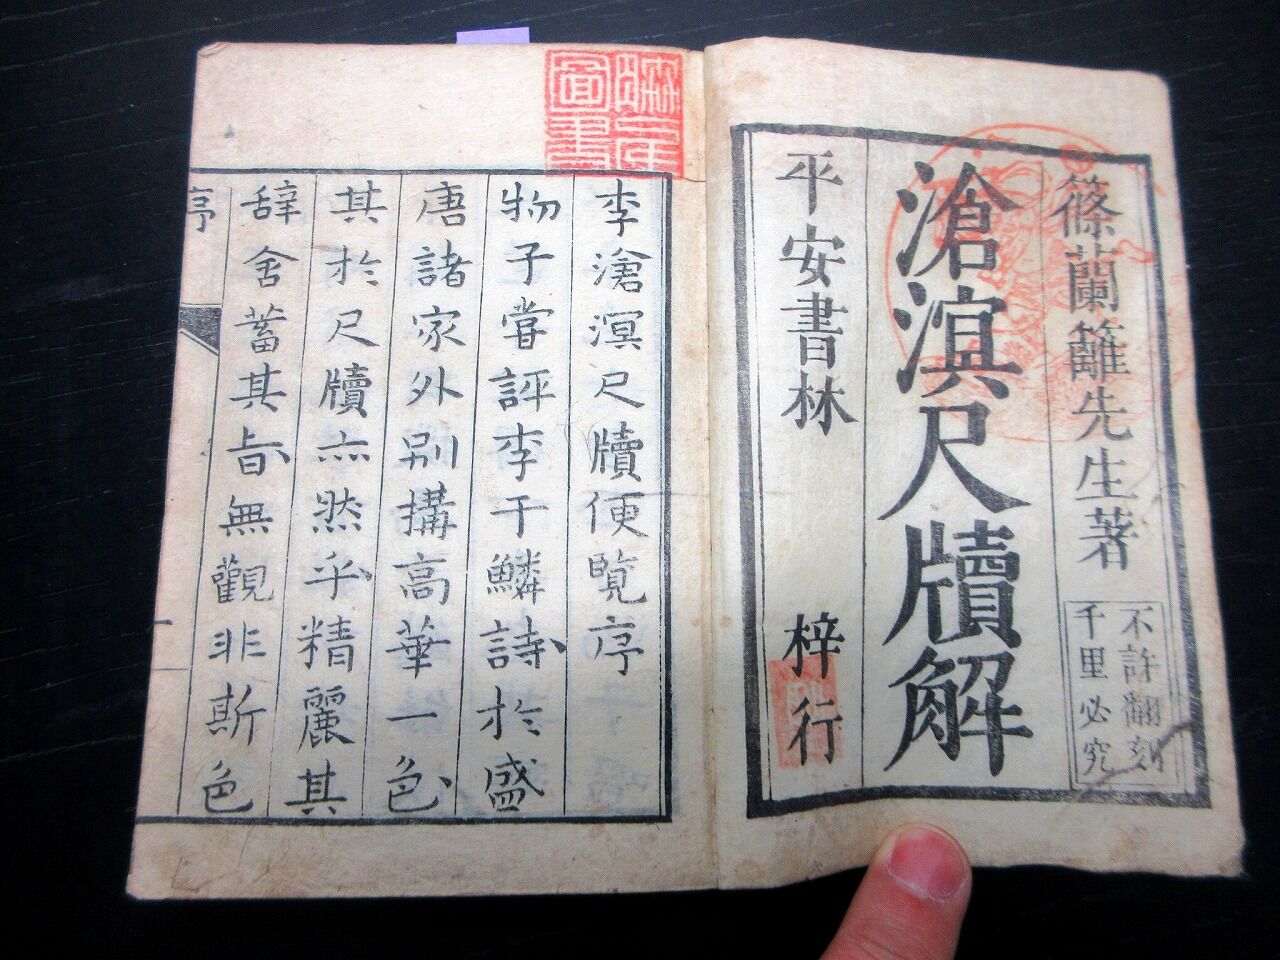 篠蘭籬先生著
不許翻刻
千里必究
滄溟尺牘解
平安書林 梓行
李滄溟尺牘便覧序
物子嘗評李于鱗詩於盛
唐諸家外別搆高華一色
其於尺牘亦然乎精麗其
辞舍蓄其旨無觀非斯色
序